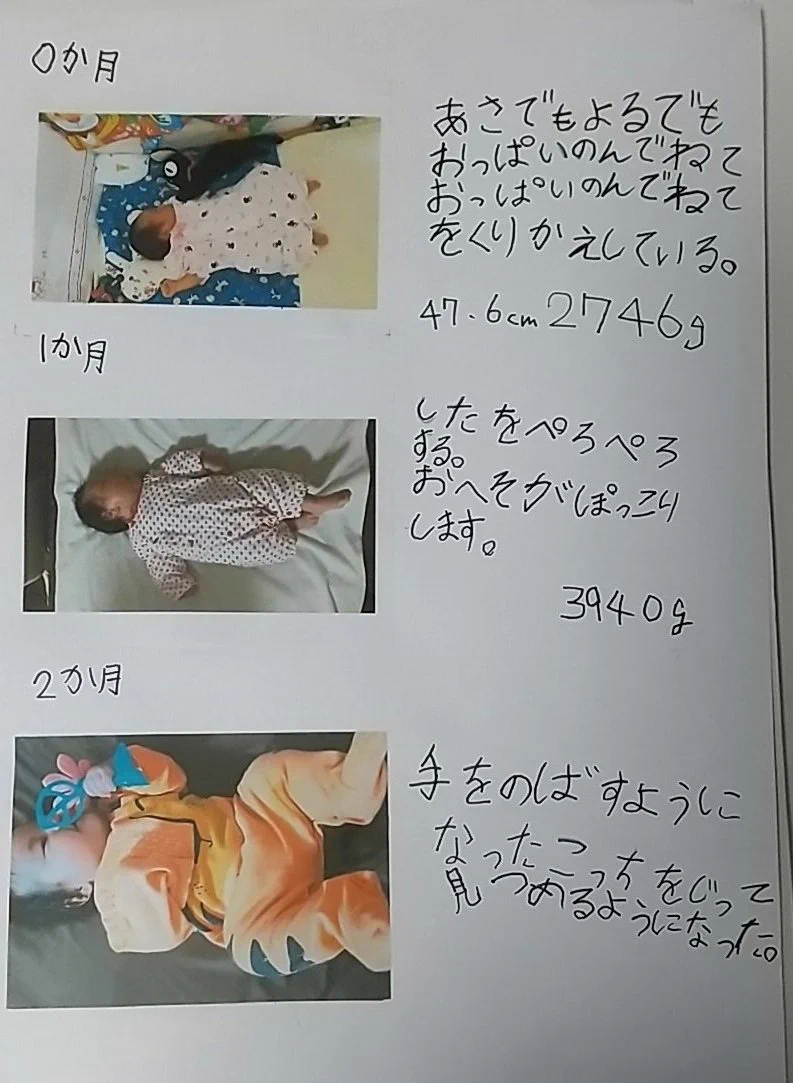 0か月
あさでもよるでも
おっぱいのんでねて
おっぱいのんでねて
をくりかえしている。
47.6cm 2746g
1か月
したをぺろぺろ
する。
おへそがぽっこり
します。
3940g
2か月
手をのばすように
なったこ
見つめるようになった。